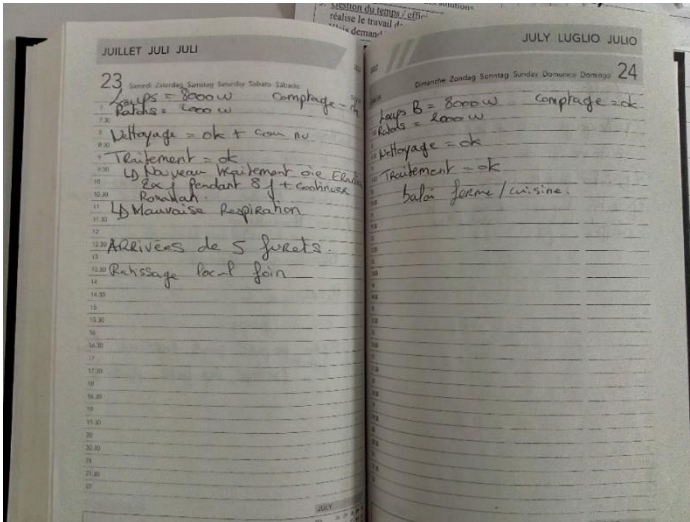 Gestion du temps / effic
réalise le travail d
JUILLET JULI JULI
23 Samedi Zaterdag Samstag Saturday Sabato Sábado
Loups = 8000 w Comptage = ok
Ratons = 2000 w
Nettoyage = ok +
Traitement = ok
↳ Nouveau traitement oie
2x/j Pendant 8j + continuer
↳ Mauvaise Respiration
ARRivées de 5 furets.
Ratissage local foin
JULY
JULY LUGLIO JULIO
Dimanche Zondag Sonntag Sunday Domenica Domingo 24
Loups B = 8000 w Comptage = ok
Ratons = 2000 w
Nettoyage = ok
Traitement = ok
balai ferme / cuisine.